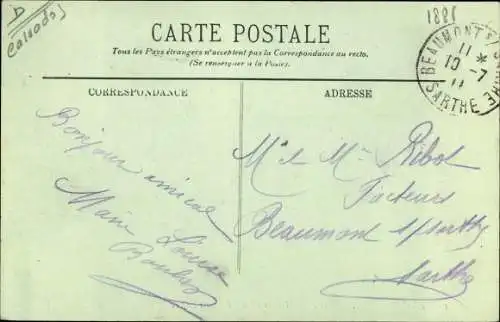 D
Calvados
1886
CARTE POSTALE
Tous les Pays étrangers n'acceptent pas la Correspondance au recto.
(Se renseigner à la Poste).
BEAUMONT S. SARTHE
11 *
10 -7
11
SARTHE
CORRESPONDANCE
ADRESSE
Bonjour amical
Marie Louise
M. et Mme Ribot
Facteurs
Beaumont s/ Sarthe
Sarthe